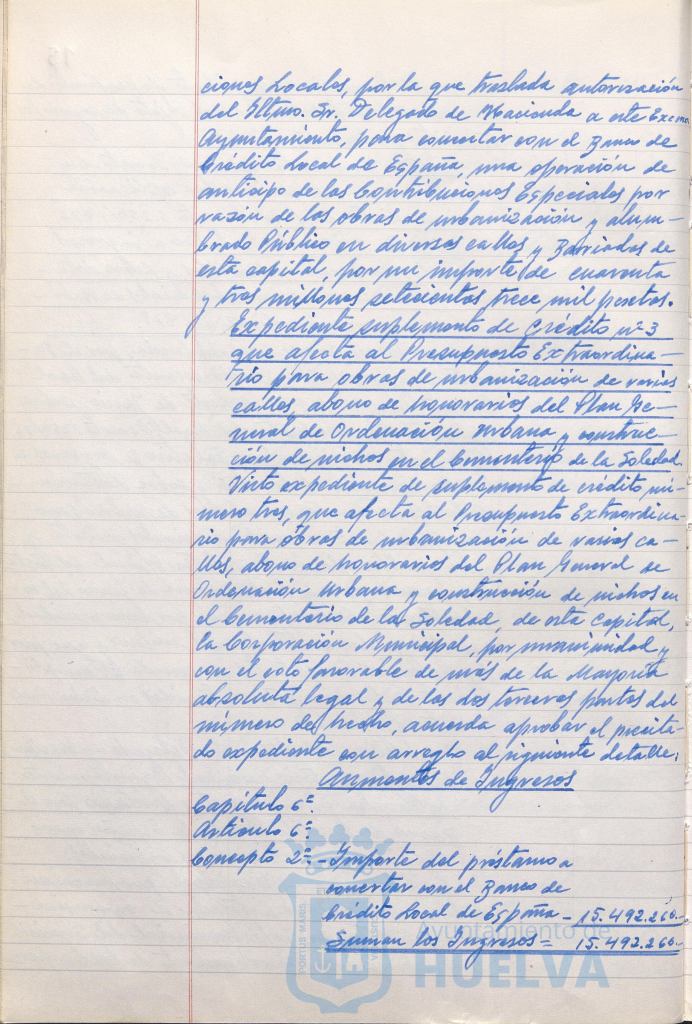 ciones Locales, por la que traslada autorización
del Iltmo. Sr. Delegado de Hacienda a este Excmo.
Ayuntamiento, para concertar con el Banco de
Crédito Local de España, una operación de
anticipo de las Contribuciones Especiales por
razón de las obras de urbanización y alum-
brado Público en diversas calles y Barriadas de
esta capital, por un importe de cuarenta
y tres millones setecientas trece mil pesetas.
Expediente suplemento de Crédito nº 3
que afecta al Presupuesto Extraordina-
rio para obras de urbanización de varias
calles, abono de honorarios del Plan Ge-
neral de Ordenación Urbana y construc-
ción de nichos en el Cementerio de la Soledad.
Visto expediente de suplemento de crédito nú-
mero tres, que afecta al Presupuesto Extraordina-
rio para obras de urbanización de varias ca-
lles, abono de honorarios del Plan General de
Ordenación Urbana y construcción de nichos en
el Cementerio de la Soledad, de esta Capital,
la Corporación Municipal, por unanimidad y
con el voto favorable de más de la Mayoría
absoluta legal y de las dos terceras partes del
número de hecho, acuerda aprobar el precita-
do expediente con arreglo al siguiente detalle:
Aumentos de Ingresos
Capítulo 6º
Artículo 6º
Concepto 2º - Importe del préstamo a
concertar con el Banco de
Crédito Local de España - 15.492.260.-
Suman los Ingresos = 15.492.260.-
PORTUS MARIS
Ayuntamiento de
HUELVA